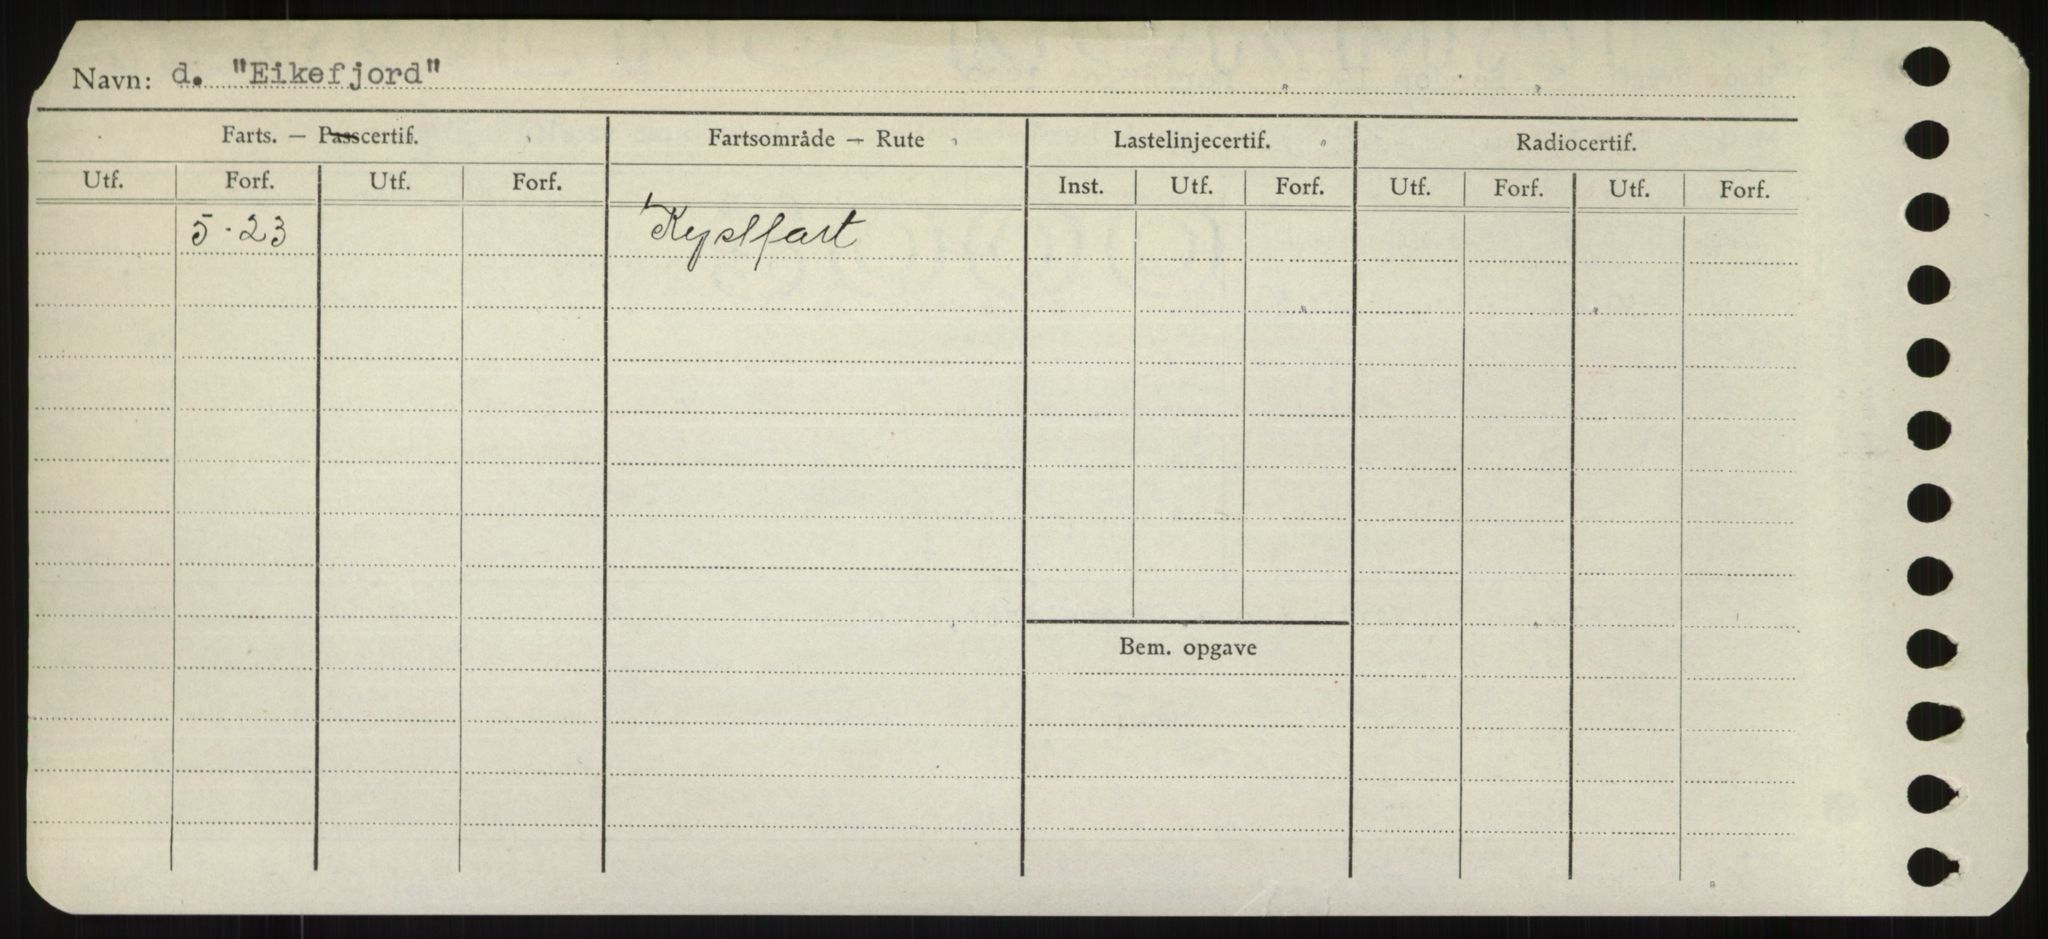 Navn: d. "Eikefjord"
Farts. — Passcertif. Fartsområde — Rute Lastelinjecertif. Radiocertif.
Utf. Forf. Utf. Forf. Inst. Utf. Forf. Utf. Forf. Utf. Forf.
5-23 Kystfart
Bem. opgave